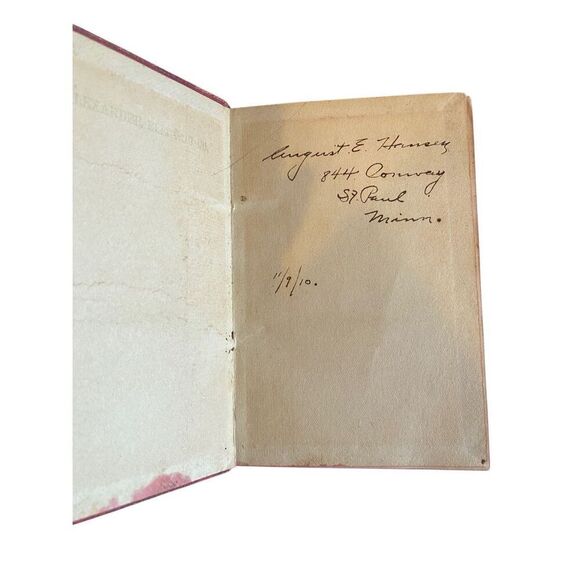 August. E. Hansen
844 Conway
St. Paul
Minn.
11/9/10.